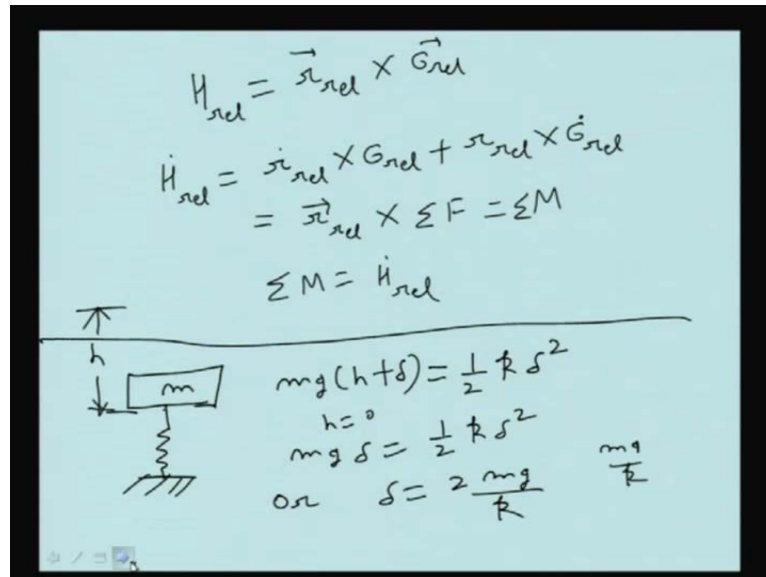 H_rel = r⃗_rel × G⃗_rel
Ḣ_rel = ṙ_rel × G_rel + r_rel × Ġ_rel
= r⃗_rel × ΣF = ΣM
ΣM = Ḣ_rel
h
m
mg(h+δ) = 1/2 k δ²
h=0
mg δ = 1/2 k δ²
or δ = 2 mg/k
mg/k